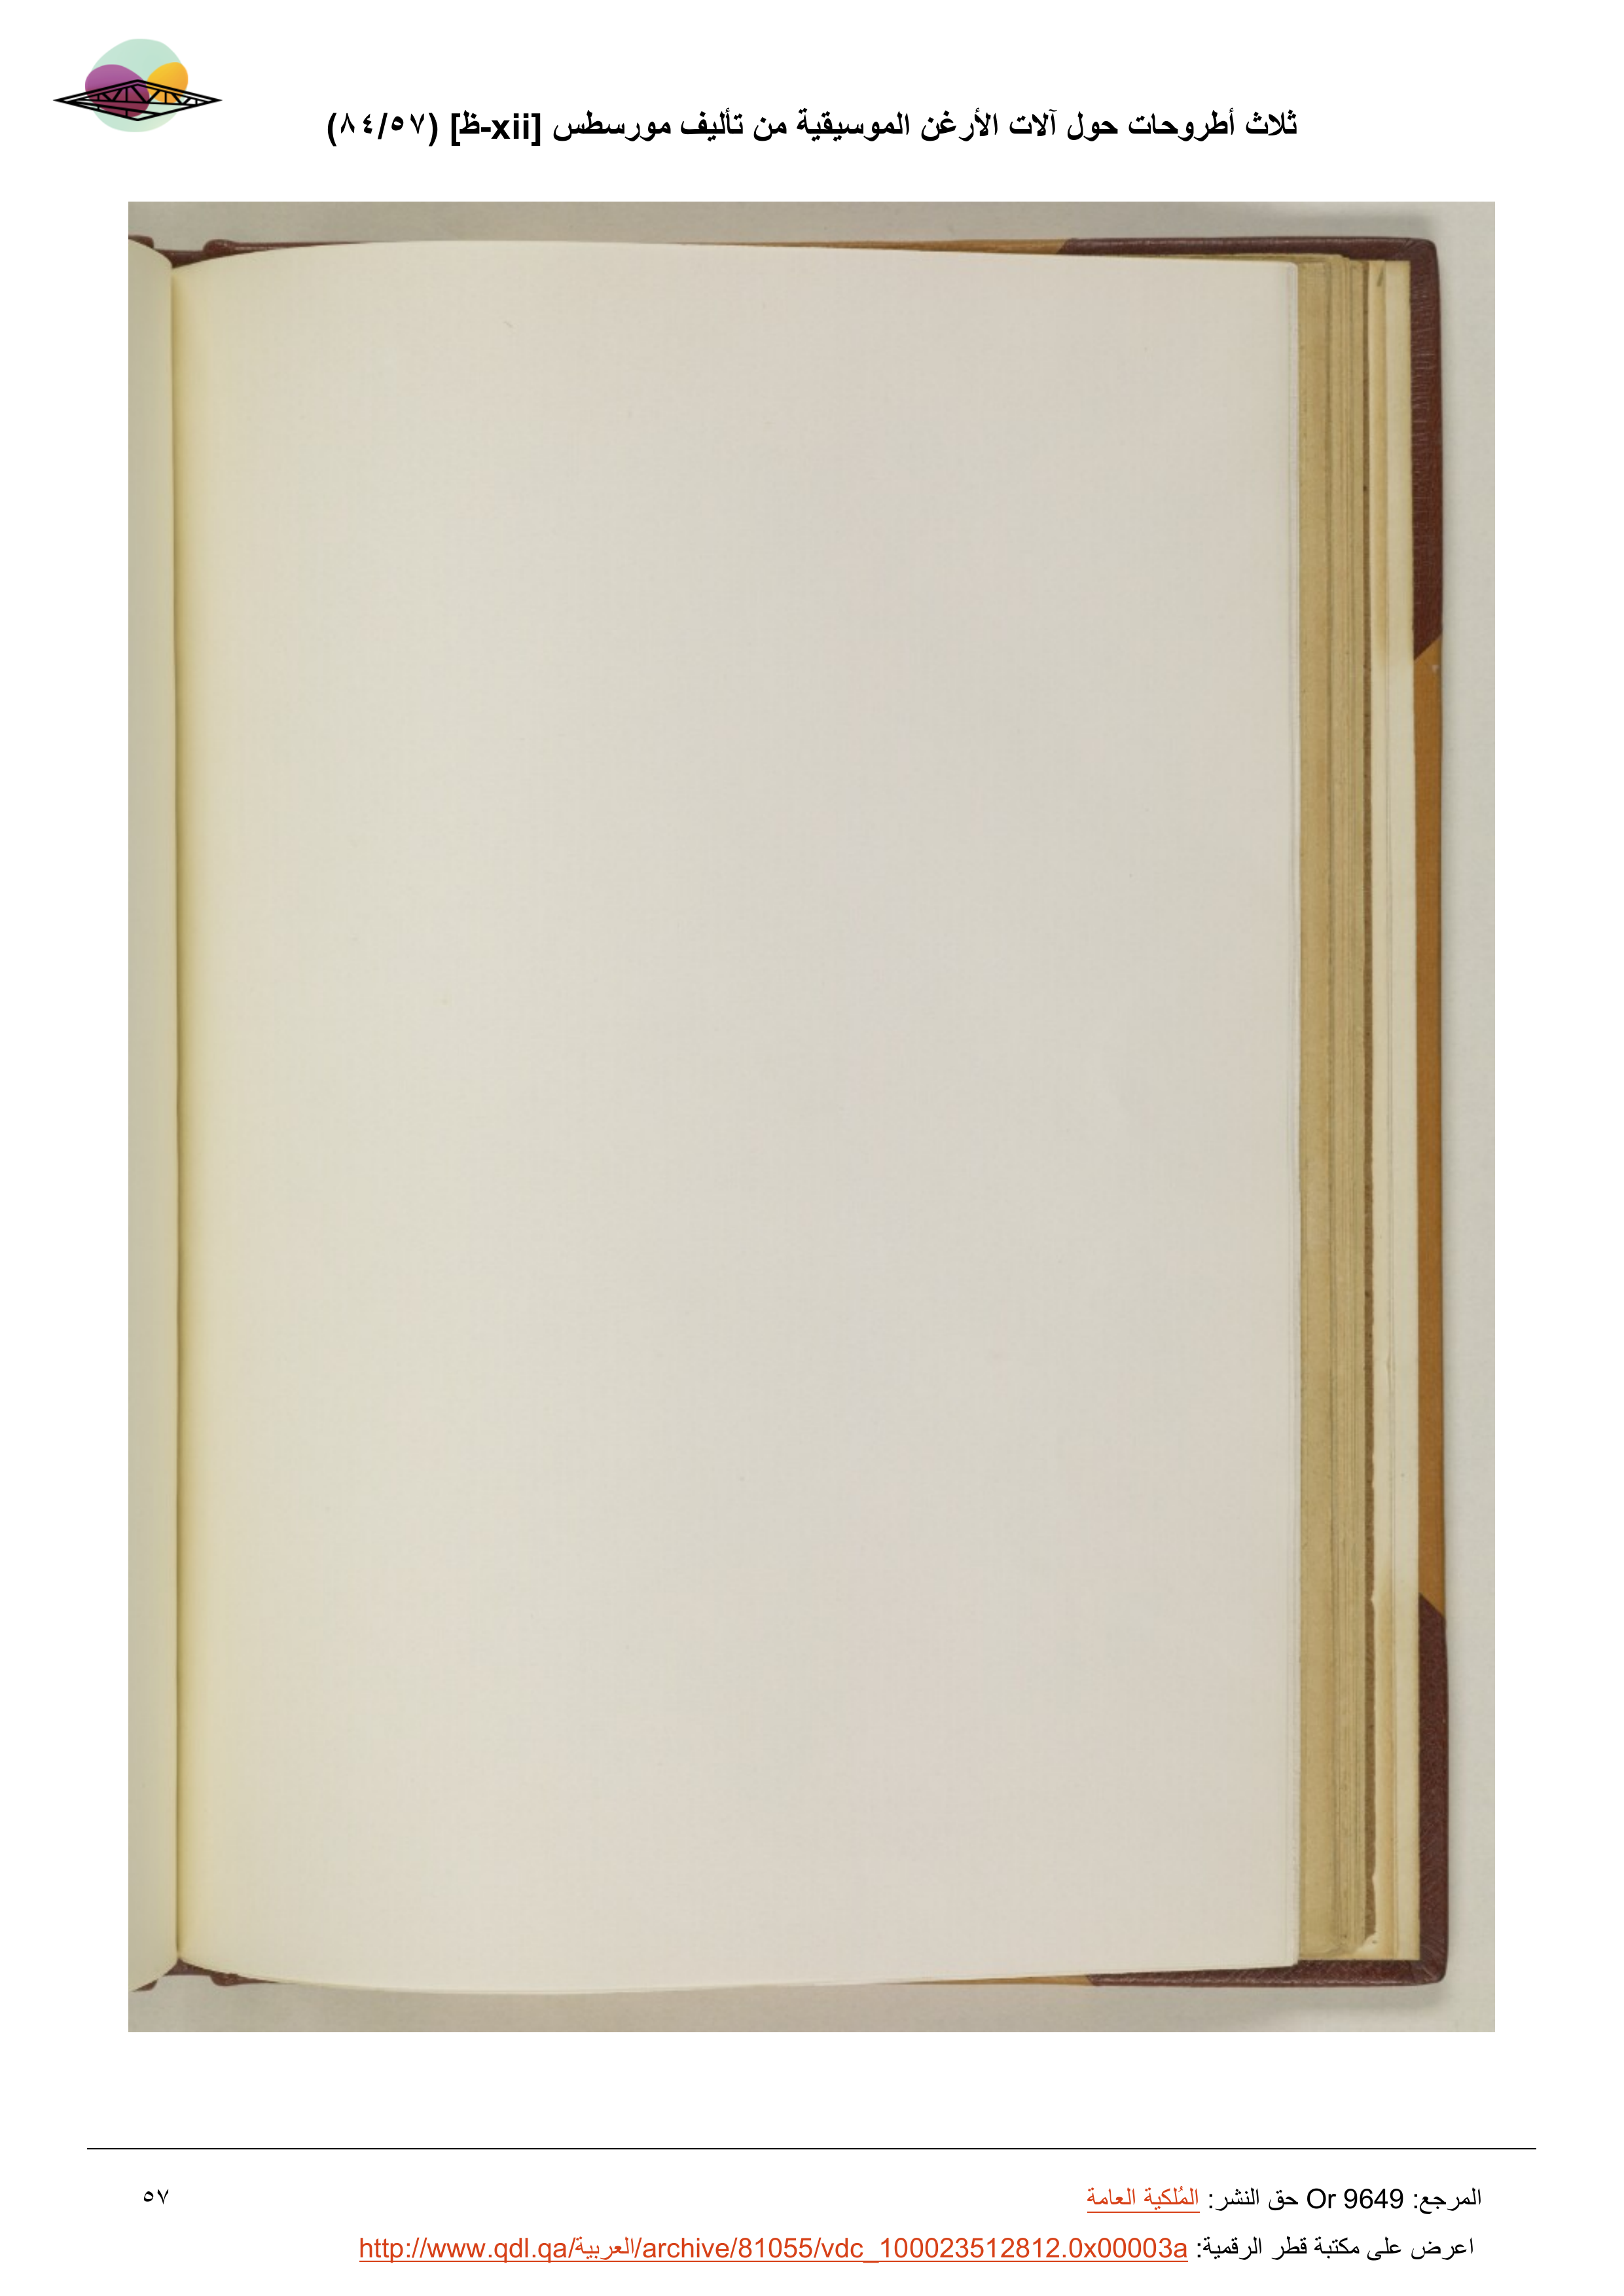 ثلاث أطروحات حول آلات الأرغن الموسيقية من تأليف مورسطس [xii-ظ] (٨٤/٥٧)
المرجع: Or 9649 حق النشر: المُلكية العامة
٥٧
اعرض على مكتبة قطر الرقمية: http://www.qdl.qa/العربية/archive/81055/vdc_100023512812.0x00003a